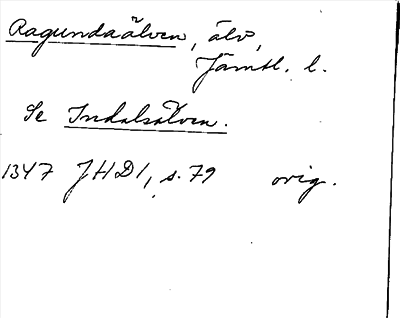 Ragundaälven, älv,
Jämtl. l.
Se Indalsälven.
1347 JHD1, s. 79 orig.